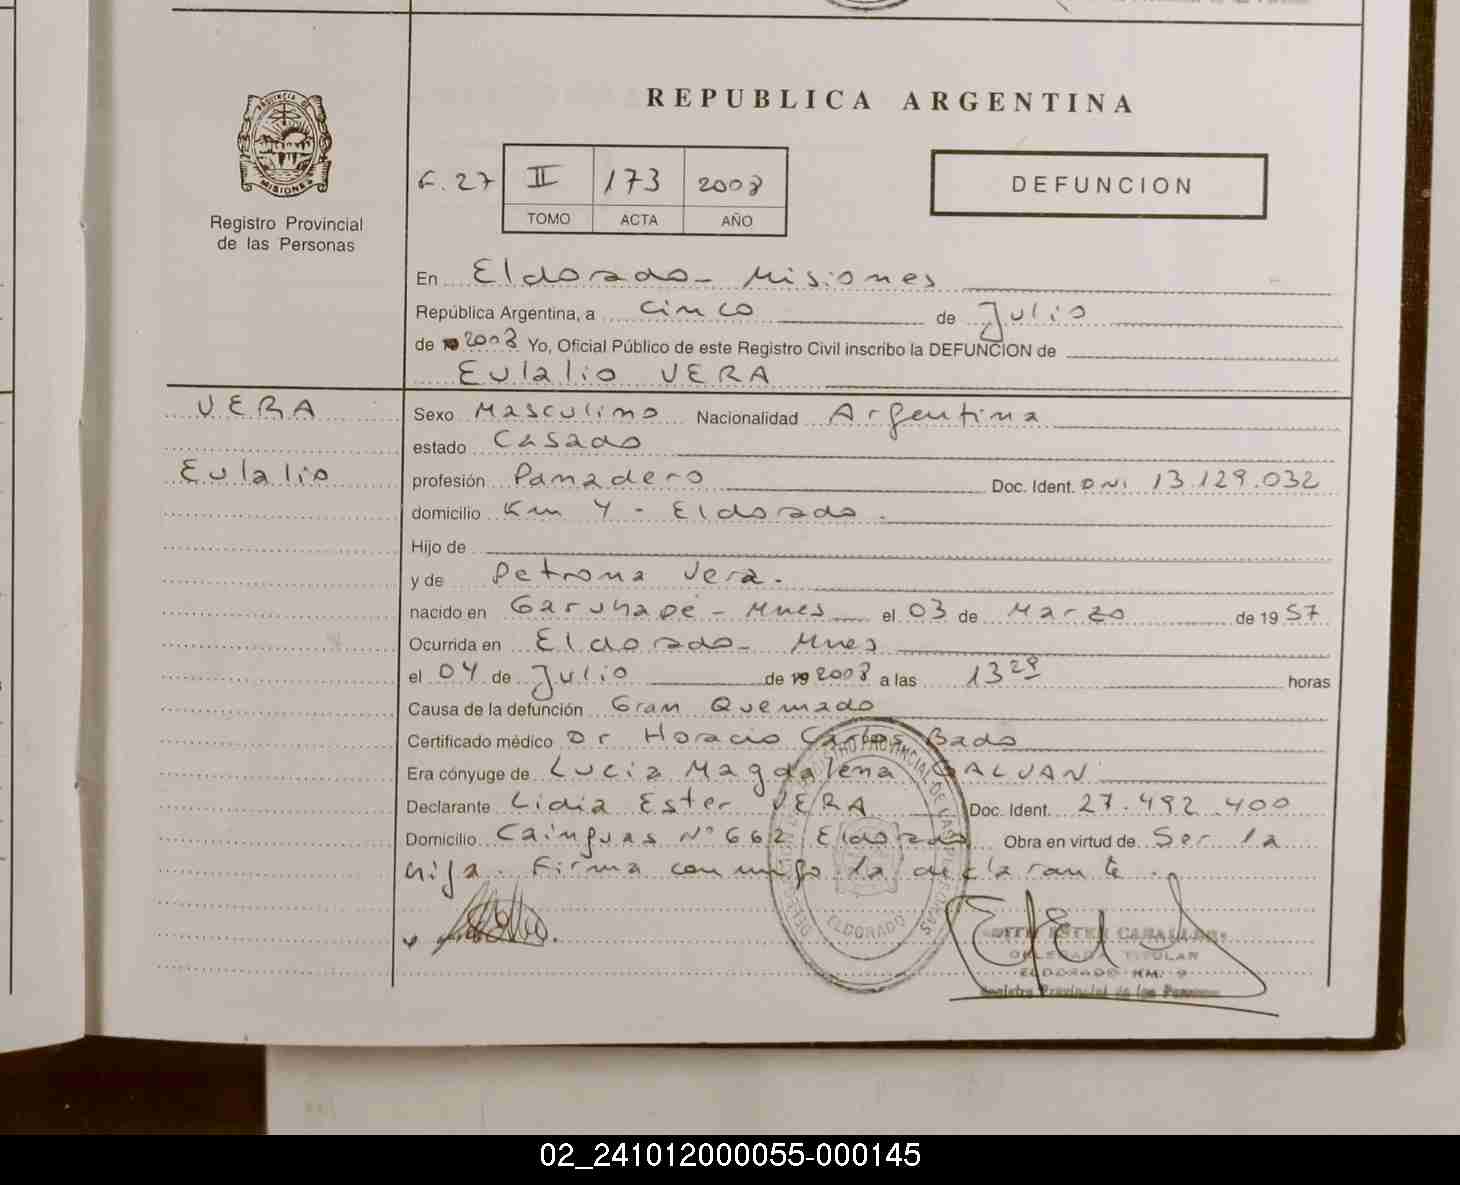 REPUBLICA ARGENTINA
PROVINCIA DE
MISIONES
Registro Provincial
de las Personas
F. 27 II 173 2008
TOMO ACTA AÑO
DEFUNCION
En Eldorado - Misiones
República Argentina, a cinco de Julio
de 2008 Yo, Oficial Público de este Registro Civil inscribo la DEFUNCION de
Eulalio VERA
VERA
Eulalio
Sexo Masculino Nacionalidad Argentina
estado Casado
profesión Panadero Doc. Ident. DNI 13.129.032
domicilio Km 4 - Eldorado.
Hijo de
y de Petrona Vera.
nacido en Garuhapé - Mnes el 03 de Marzo de 1957
Ocurrida en Eldorado - Mnes
el 04 de Julio de 19 2008 a las 13 29 horas
Causa de la defunción Gran Quemado
Certificado médico Dr Horacio Carlos Bado
Era cónyuge de Lucia Magdalena GALVAN
Declarante Lidia Ester VERA Doc. Ident. 27.492.400
Domicilio Cainguas N° 662 Eldorado Obra en virtud de Ser la
hija. Firma conmigo la declarante.
REGISTRO PROVINCIAL DE LAS PERSONAS
ELDORADO
EDITH ESTER CABALLERO
DELEGADA TITULAR
ELDORADO KM. 9
Registro Provincial de las Personas
02_241012000055-000145